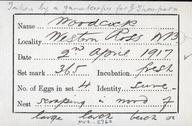 Taken by a gamekeeper for J. Thompson
Name Woodcock
Locality Western Ross NB
Date 2nd April 1917
Set mark 365 Incubation. fresh
No. of Eggs in set 4 Identity sure
Nest scraping in wood of
large larch